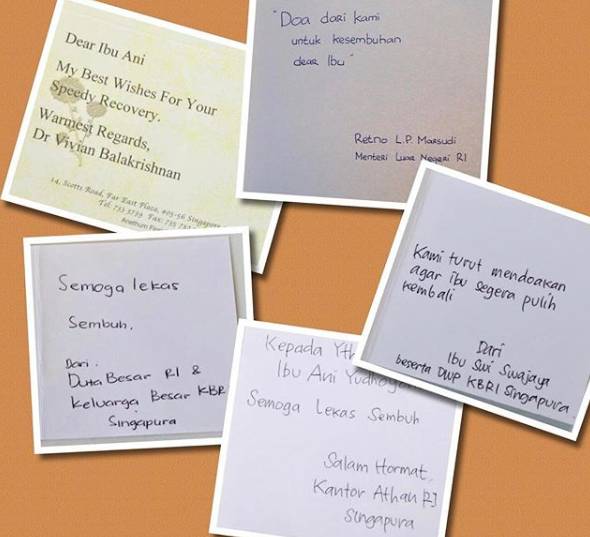 Dear Ibu Ani
My Best Wishes For Your
Speedy Recovery.
Warmest Regards,
Dr Vivian Balakrishnan
14, Scotts Road, Far East Plaza, #05-56 Singapore
Tel: 735 3739 Fax: 735
"Doa dari kami
untuk kesembuhan
dear Ibu"
Retno L.P. Marsudi
Menteri Luar Negeri RI
Semoga lekas
Sembuh.
Dari :
Duta Besar RI &
Keluarga Besar KBR
Singapura
Kami turut mendoakan
agar ibu segera pulih
kembali
Dari
Ibu Sui Swajaya
beserta DWP KBRI Singapura
Kepada Yth
Ibu Ani Yudhoyon
Semoga Lekas Sembuh
Salam Hormat,
Kantor Athan RI
Singapura